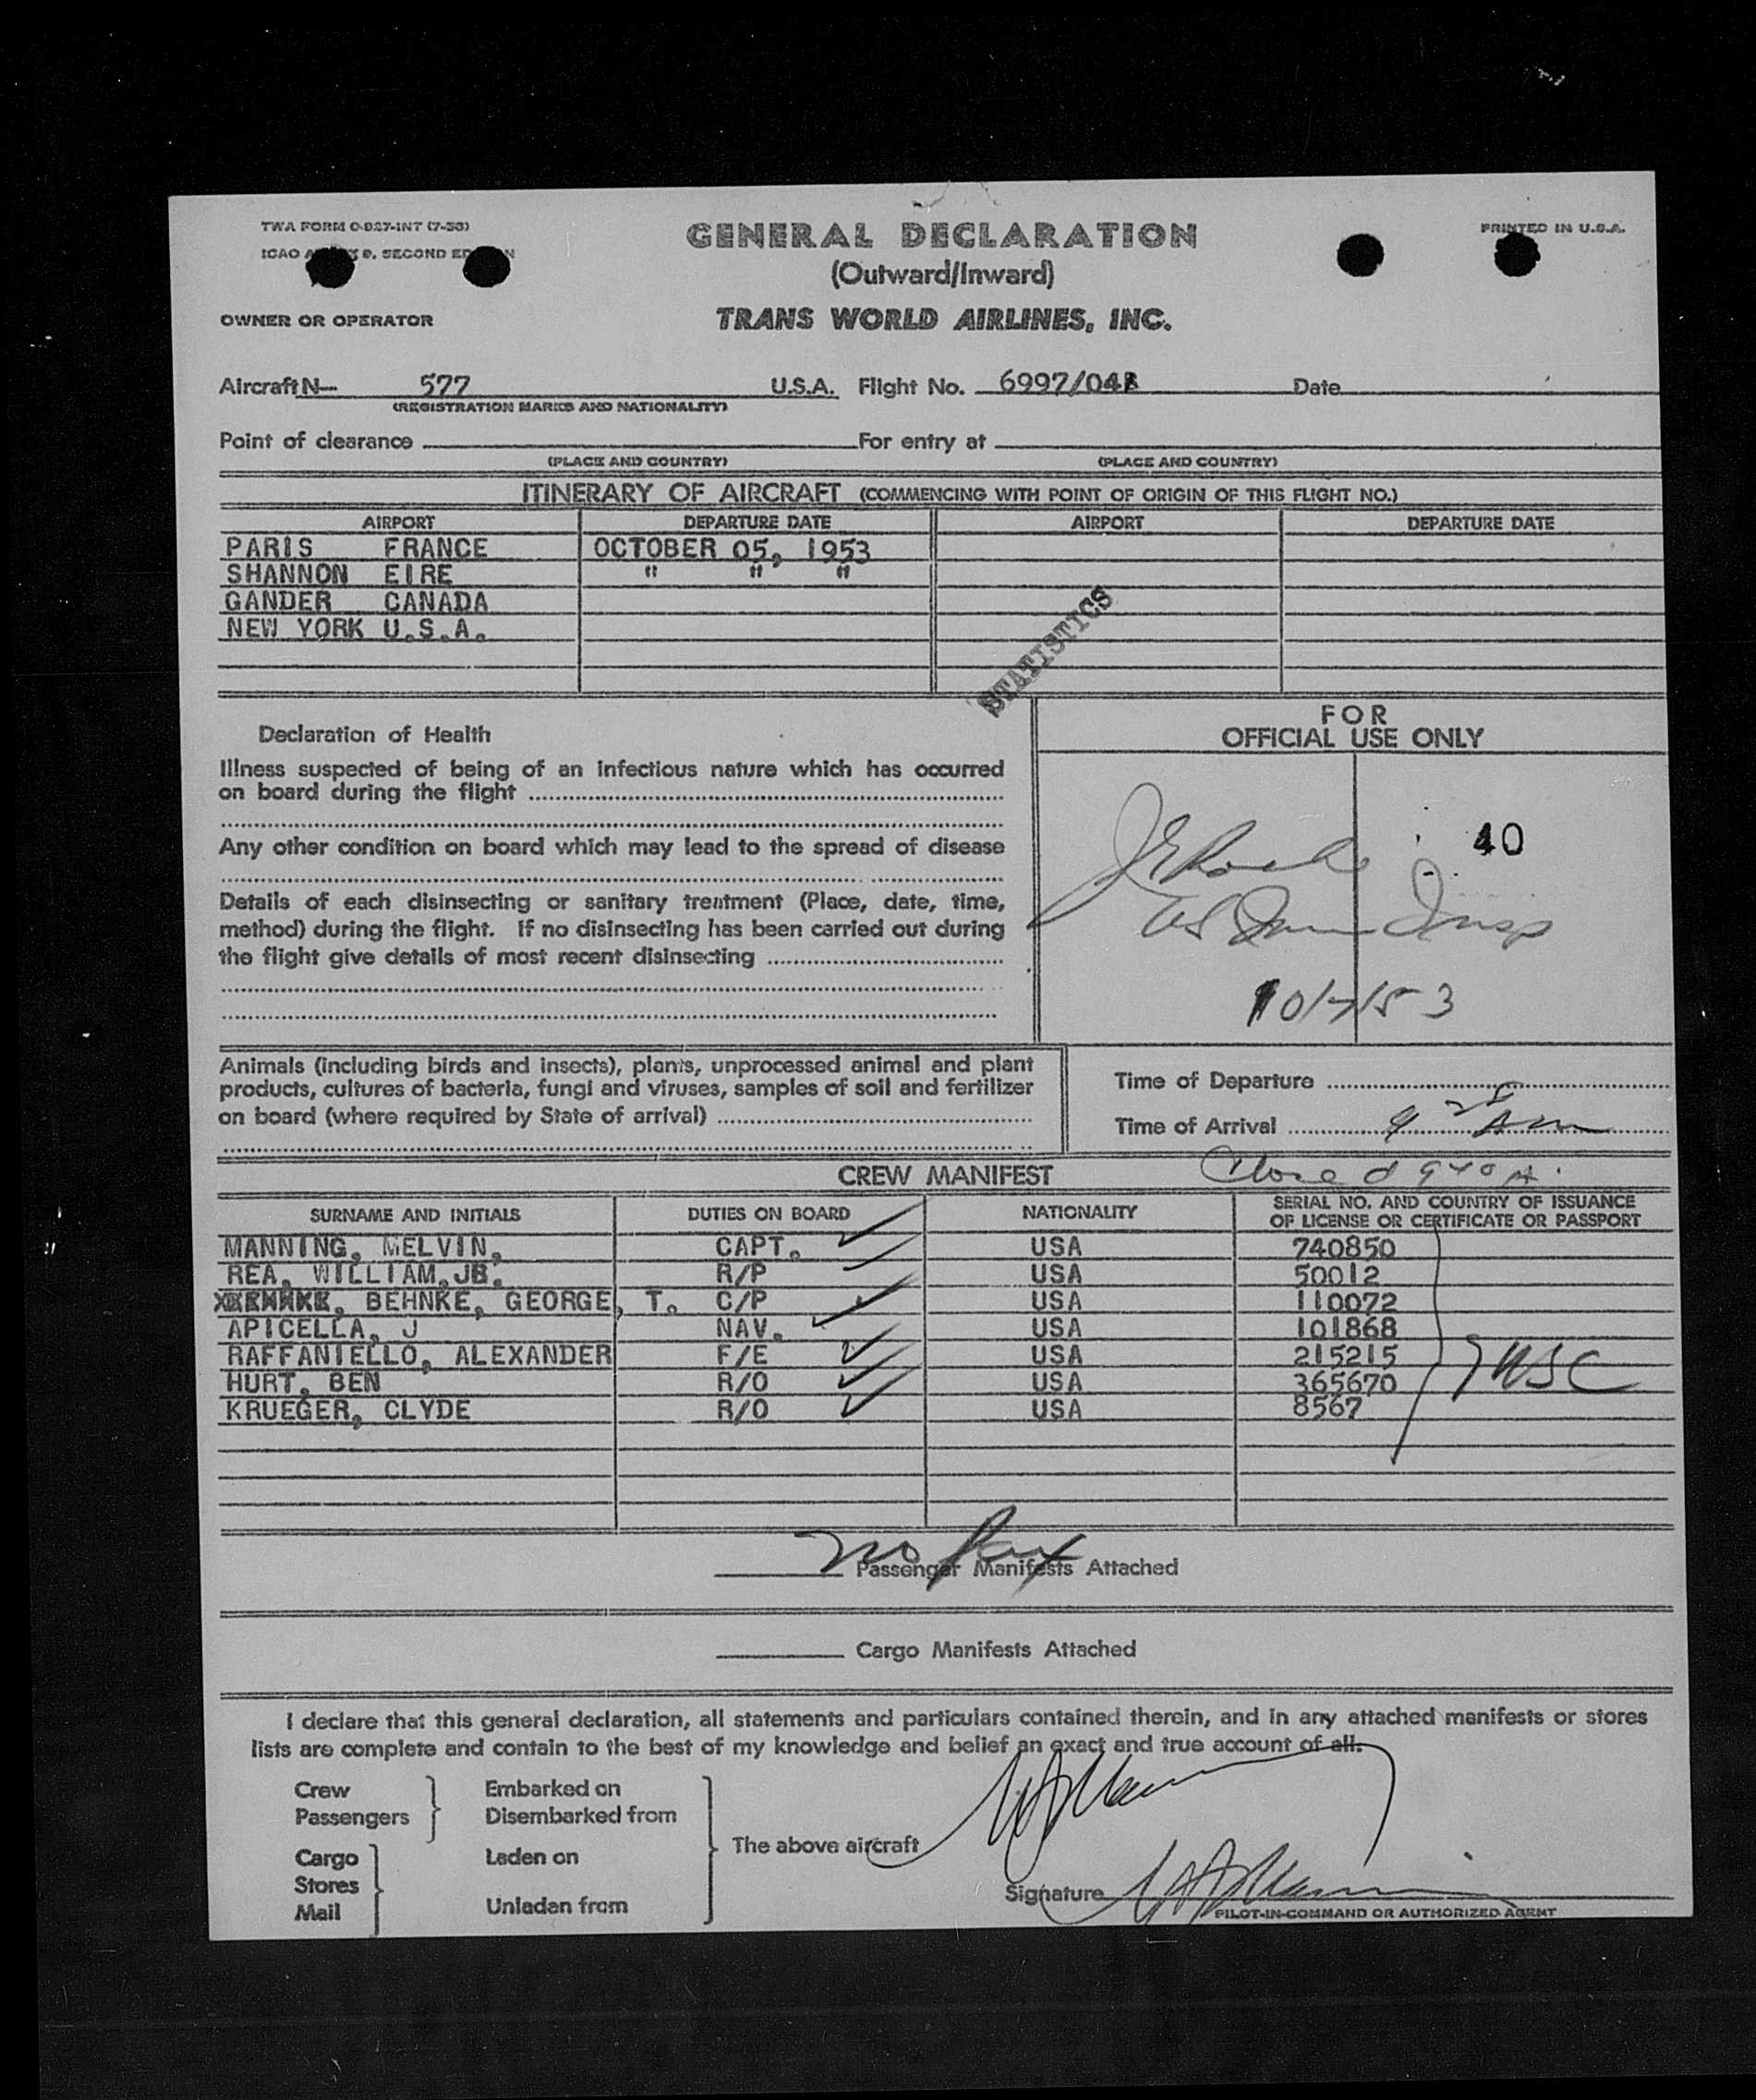 TWA FORM O-927-INT (7-53)
ICAO ANNEX 9, SECOND EDITION
PRINTED IN U.S.A.
GENERAL DECLARATION
(Outward/Inward)
OWNER OR OPERATOR TRANS WORLD AIRLINES, INC.
Aircraft N— 577 U.S.A. Flight No. 6997/04 Date
(REGISTRATION MARKS AND NATIONALITY)
Point of clearance For entry at
(PLACE AND COUNTRY) (PLACE AND COUNTRY)
ITINERARY OF AIRCRAFT (COMMENCING WITH POINT OF ORIGIN OF THIS FLIGHT NO.)
AIRPORT DEPARTURE DATE AIRPORT DEPARTURE DATE
PARIS FRANCE OCTOBER 05, 1953
SHANNON EIRE " " "
GANDER CANADA
NEW YORK U.S.A.
STATISTICS
FOR
OFFICIAL USE ONLY
Declaration of Health
Illness suspected of being of an infectious nature which has occurred
on board during the flight
Any other condition on board which may lead to the spread of disease
Details of each disinsecting or sanitary treatment (Place, date, time,
method) during the flight. If no disinsecting has been carried out during
the flight give details of most recent disinsecting
40
US Imm Insp
10/7/53
Animals (including birds and insects), plants, unprocessed animal and plant
products, cultures of bacteria, fungi and viruses, samples of soil and fertilizer
on board (where required by State of arrival)
Time of Departure
Time of Arrival 9 25 Am
CREW MANIFEST Closed 9 40 A.
SURNAME AND INITIALS DUTIES ON BOARD NATIONALITY SERIAL NO. AND COUNTRY OF ISSUANCE
OF LICENSE OR CERTIFICATE OR PASSPORT
MANNING, MELVIN, CAPT. USA 740850
REA, WILLIAM,JB. R/P USA 50012
BEHNKE, GEORGE, T. C/P USA 110072
APICELLA, J NAV. USA 101868
RAFFANIELLO, ALEXANDER F/E USA 215215
HURT, BEN R/O USA 365670
KRUEGER, CLYDE R/O USA 8567
7 USC
no Pax
Passenger Manifests Attached
Cargo Manifests Attached
I declare that this general declaration, all statements and particulars contained therein, and in any attached manifests or stores
lists are complete and contain to the best of my knowledge and belief an exact and true account of all.
Crew Embarked on
Passengers Disembarked from
The above aircraft
Cargo Laden on
Stores
Mail Unladen from
Signature
PILOT-IN-COMMAND OR AUTHORIZED AGENT